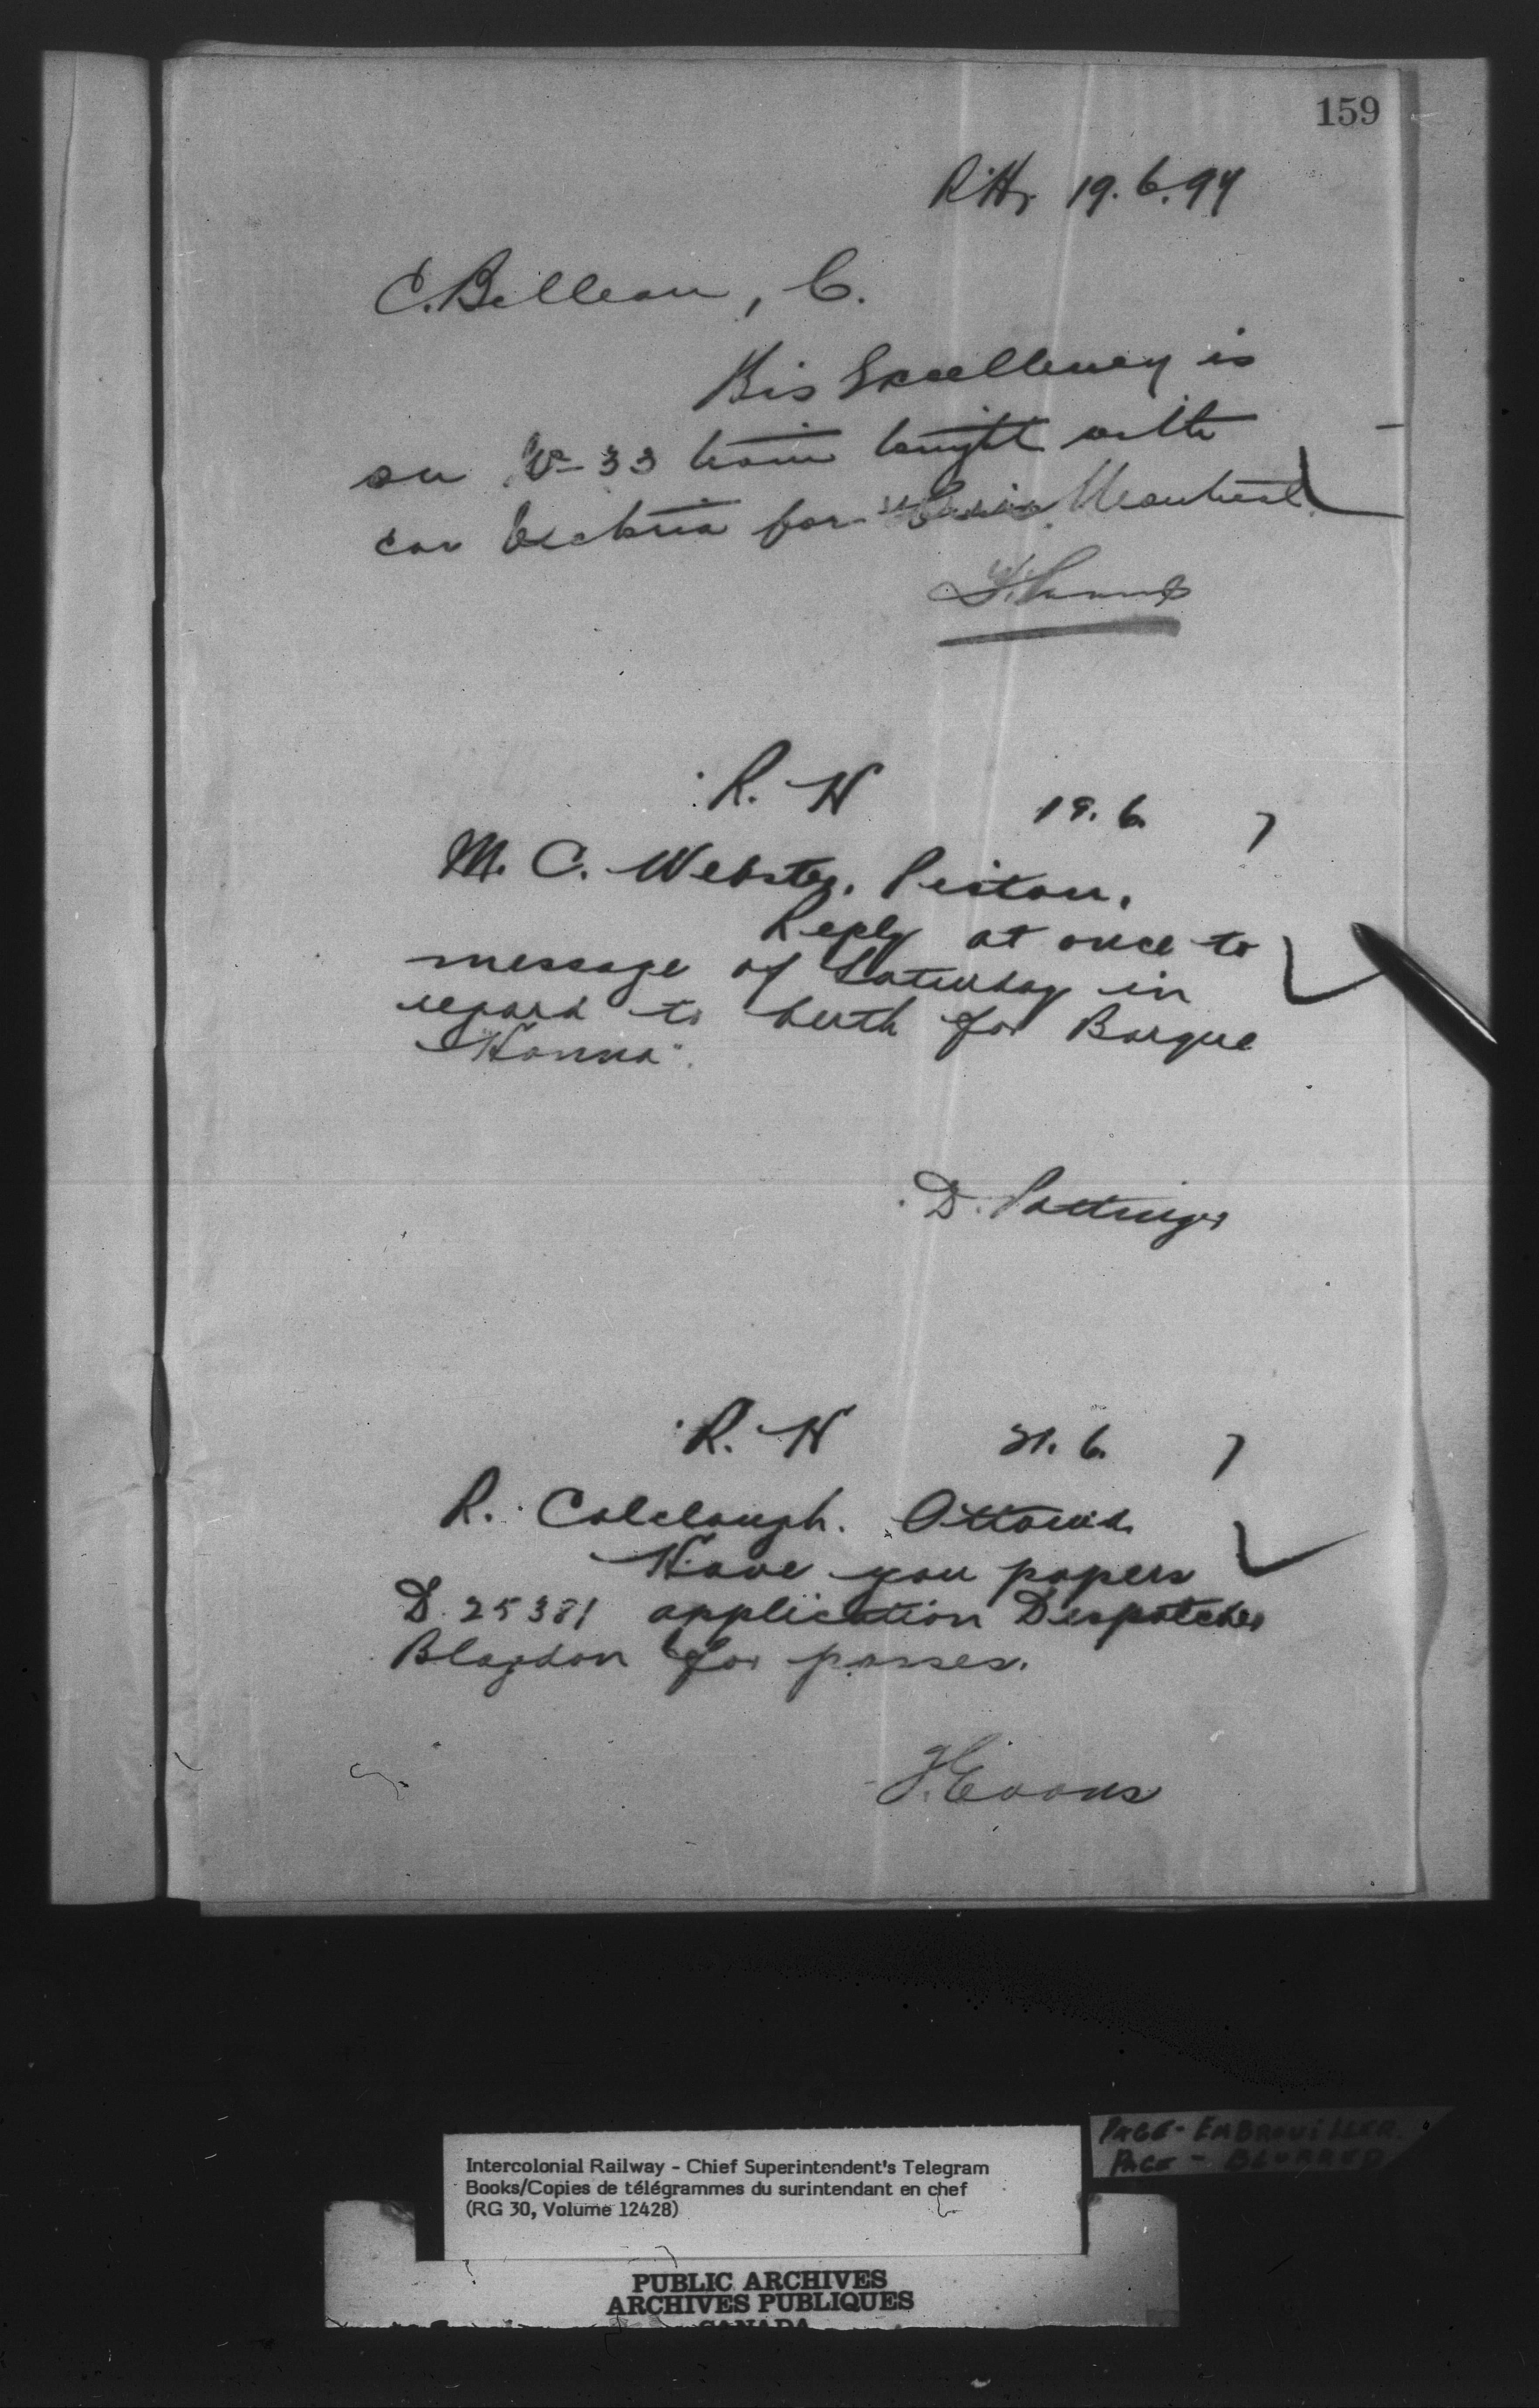 159
R.H. 19.6.94
C. Billeau, C.
His Excellency is
on No 33 train tonight with
car Victoria for Montreal
R. H 19.6. 7
M. C. Webster. Pictou.
Reply at once to
message of Saturday in
regard to berth for Barque
"Hanna".
D. Pottinger
R. H 21.6. 7
R. Colclough. Ottawa.
Have you papers
D. 25381 application Despatcher
Blagdon for passes.
J. Evans
PAGE - EMBROUILLER.
PAGE - BLURRED
Intercolonial Railway - Chief Superintendent's Telegram
Books/Copies de télégrammes du surintendant en chef
(RG 30, Volume 12428)
PUBLIC ARCHIVES
ARCHIVES PUBLIQUES
CANADA